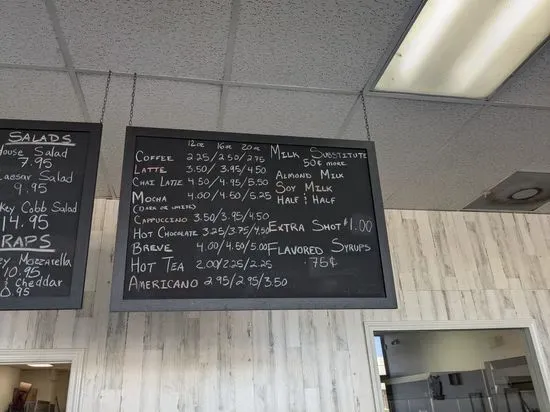 SALADS
House Salad
7.95
Caesar Salad
9.95
key Cobb Salad
14.95
RAPS
ey Mozzarella
10.95
& Cheddar
0.95
12oz 16oz 20oz
COFFEE 2.25/2.50/2.75
LATTE 3.50/3.95/4.50
CHAI LATTE 4.50/4.95/5.50
MOCHA 4.00/4.50/5.25
(DARK OR WHITE)
CAPPUCCINO 3.50/3.95/4.50
HOT CHOCOLATE 3.25/3.75/4.50
BREVE 4.00/4.50/5.00
HOT TEA 2.00/2.25/2.25
AMERICANO 2.95/2.95/3.50
MILK SUBSTITUTE
50¢ MORE
ALMOND MILK
SOY MILK
HALF & HALF
EXTRA SHOT $1.00
FLAVORED SYRUPS
.75¢